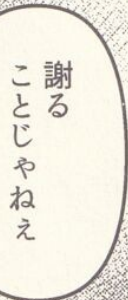 謝る
ことじゃねぇ